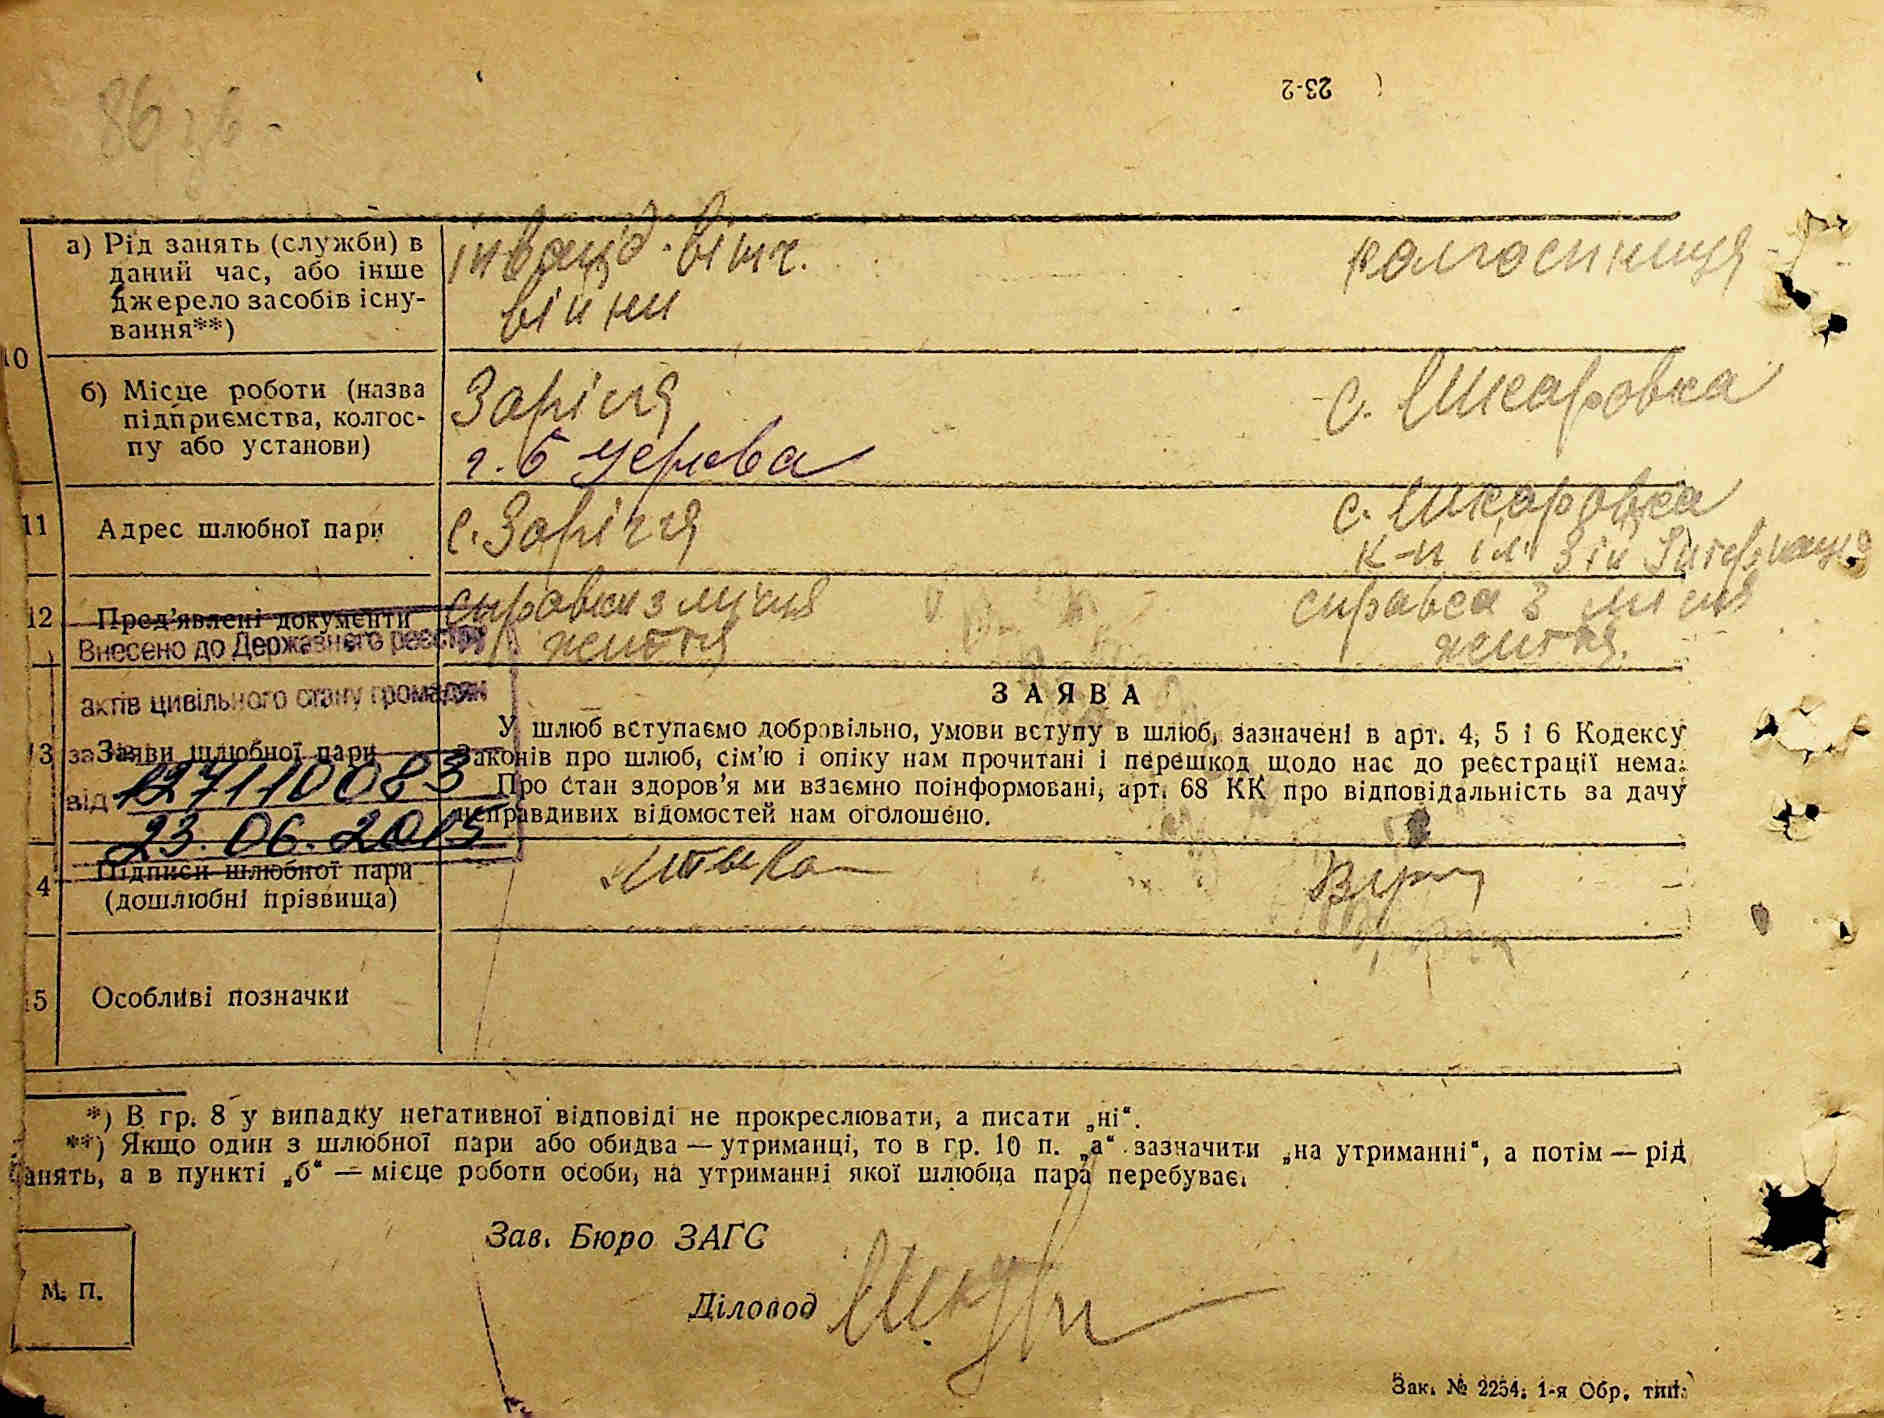 23-2
а) Рід занять (служби) в
даний час, або інше
джерело засобів існу-
вання**)
інвалід вітч.
війни
колгоспниця
10
б) Місце роботи (назва
підприємства, колгос-
пу або установи)
Заріччя
г. Б Церква
с. Шкаровка
11
Адрес шлюбної пари
с. Заріччя
с. Шкаровка
к-п ім. 3 ій Інтернац
12
Пред'явлені документи
справка з місця
життя
справка з місця
життя.
Внесено до Державного реєстру
актів цивільного стану громадян
за
127110083
від
23.06.2015
13
Заяви шлюбної пари
ЗАЯВА
У шлюб вступаємо добровільно, умови вступу в шлюб, зазначені в арт. 4, 5 і 6 Кодексу
Законів про шлюб, сім'ю і опіку нам прочитані і перешкод щодо нас до реєстрації нема.
Про стан здоров'я ми взаємно поінформовані, арт. 68 КК про відповідальність за дачу
неправдивих відомостей нам оголошено.
4
Підписи шлюбної пари
(дошлюбні прізвища)
5
Особливі позначки
*) В гр. 8 у випадку негативної відповіді не прокреслювати, а писати „ні“.
**) Якщо один з шлюбної пари або обидва — утриманці, то в гр. 10 п. „а“ зазначити „на утриманні“, а потім — рід
занять, а в пункті „б“ — місце роботи особи, на утриманні якої шлюбна пара перебуває.
Зав. Бюро ЗАГС
М. П.
Діловод
Зак. № 2254. 1-я Обр. тип.